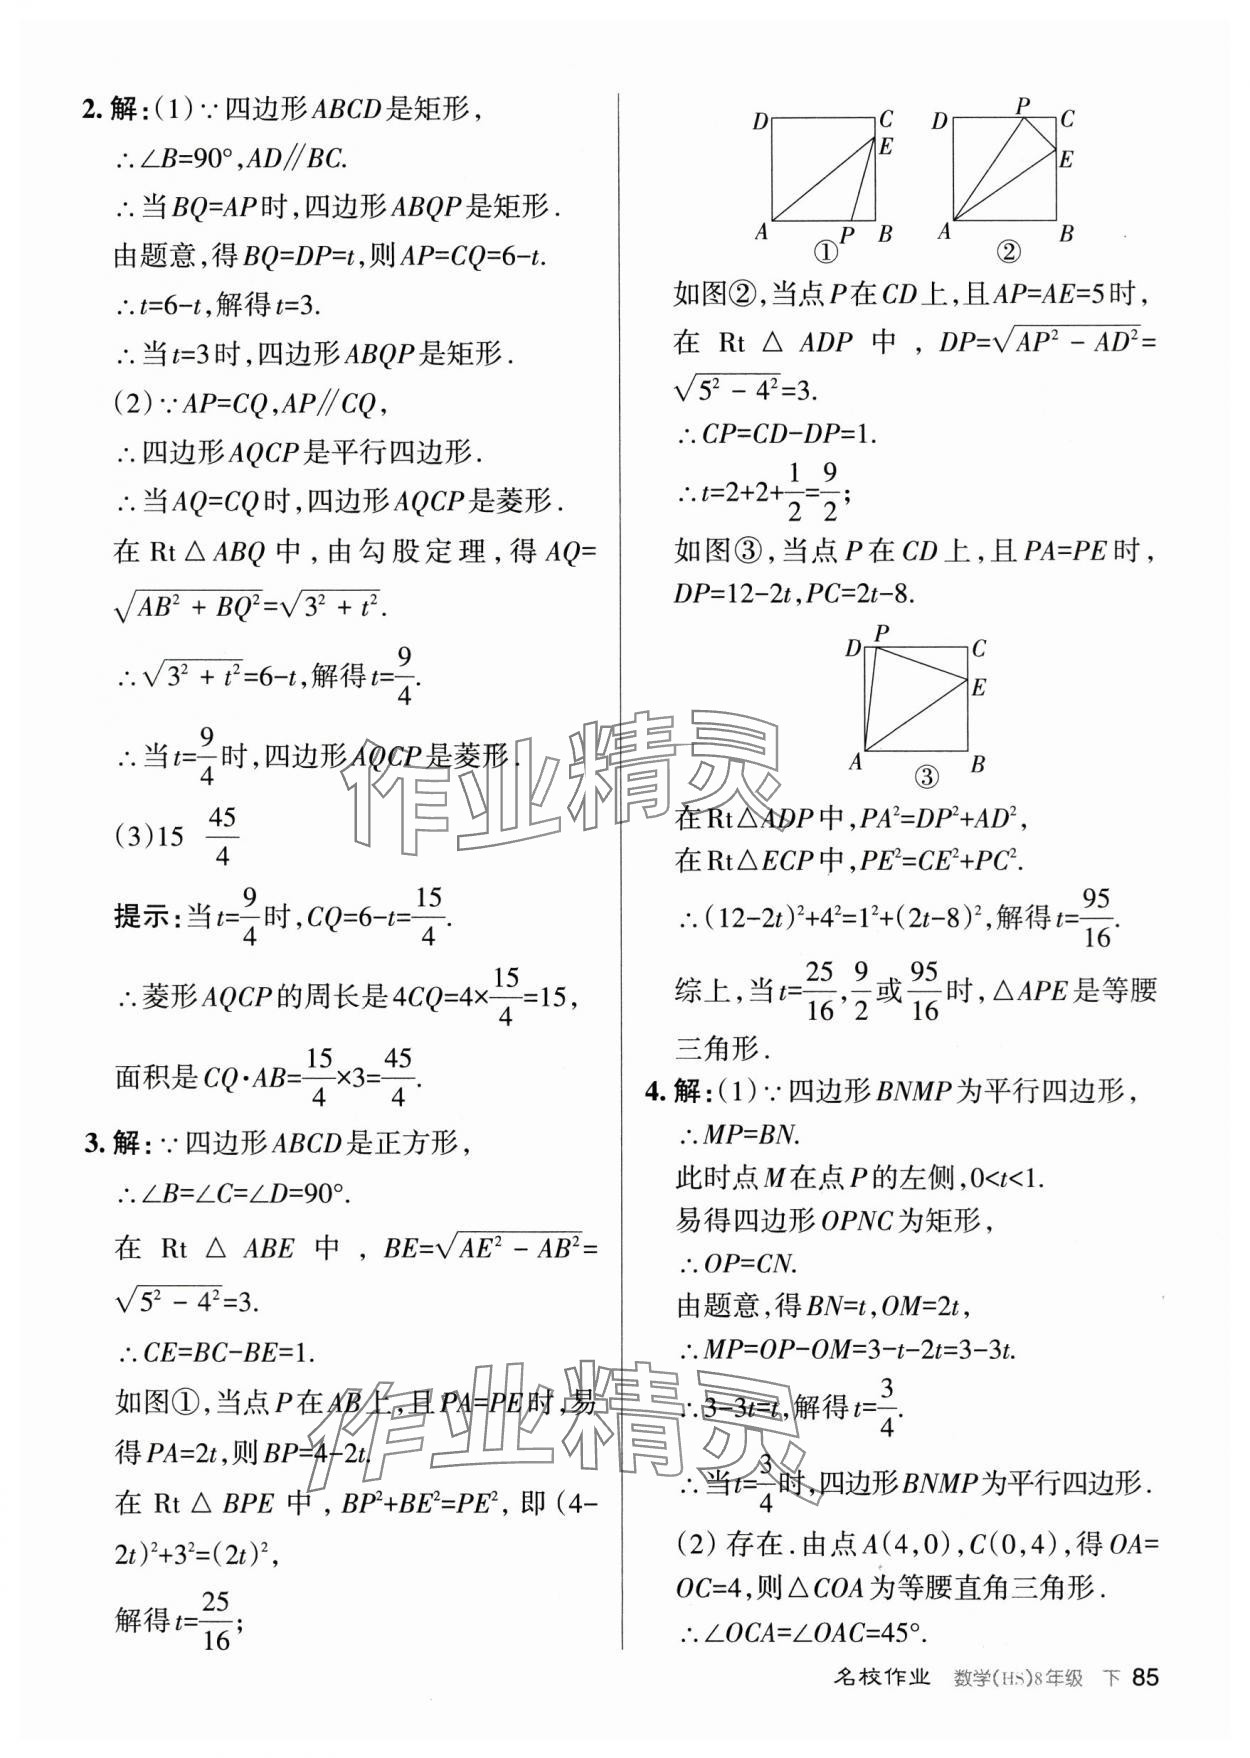 2. 解:(1)∵四边形ABCD是矩形,
∴∠B=90°,AD∥BC.
∴当BQ=AP时,四边形ABQP是矩形.
由题意,得BQ=DP=t,则AP=CQ=6-t.
∴t=6-t,解得t=3.
∴当t=3时,四边形ABQP是矩形.
(2)∵AP=CQ,AP∥CQ,
∴四边形AQCP是平行四边形.
∴当AQ=CQ时,四边形AQCP是菱形.
在Rt△ABQ中,由勾股定理,得AQ=
√(AB²+BQ²)=√(3²+t²).
∴√(3²+t²)=6-t,解得t=9/4.
∴当t=9/4时,四边形AQCP是菱形.
(3)15 45/4
提示:当t=9/4时,CQ=6-t=15/4.
∴菱形AQCP的周长是4CQ=4×15/4=15,
面积是CQ·AB=15/4×3=45/4.
3. 解:∵四边形ABCD是正方形,
∴∠B=∠C=∠D=90°.
在Rt△ABE中,BE=√(AE²-AB²)=
√(5²-4²)=3.
∴CE=BC-BE=1.
如图①,当点P在AB上,且PA=PE时,易
得PA=2t,则BP=4-2t.
在Rt△BPE中,BP²+BE²=PE²,即(4-
2t)²+3²=(2t)²,
解得t=25/16;
D C E A P B ①
D P C E A B ②
如图②,当点P在CD上,且AP=AE=5时,
在Rt△ADP中,DP=√(AP²-AD²)=
√(5²-4²)=3.
∴CP=CD-DP=1.
∴t=2+2+1/2=9/2;
如图③,当点P在CD上,且PA=PE时,
DP=12-2t,PC=2t-8.
D P C E A B ③
在Rt△ADP中,PA²=DP²+AD²,
在Rt△ECP中,PE²=CE²+PC².
∴(12-2t)²+4²=1²+(2t-8)²,解得t=95/16.
综上,当t=25/16,9/2或95/16时,△APE是等腰
三角形.
4. 解:(1)∵四边形BNMP为平行四边形,
∴MP=BN.
此时点M在点P的左侧,0<t<1.
易得四边形OPNC为矩形,
∴OP=CN.
由题意,得BN=t,OM=2t,
∴MP=OP-OM=3-t-2t=3-3t.
∴3-3t=t,解得t=3/4.
∴当t=3/4时,四边形BNMP为平行四边形.
(2)存在.由点A(4,0),C(0,4),得OA=
OC=4,则△COA为等腰直角三角形.
∴∠OCA=∠OAC=45°.
作业精灵
作业精灵
名校作业 数学(HS)8年级 下 85